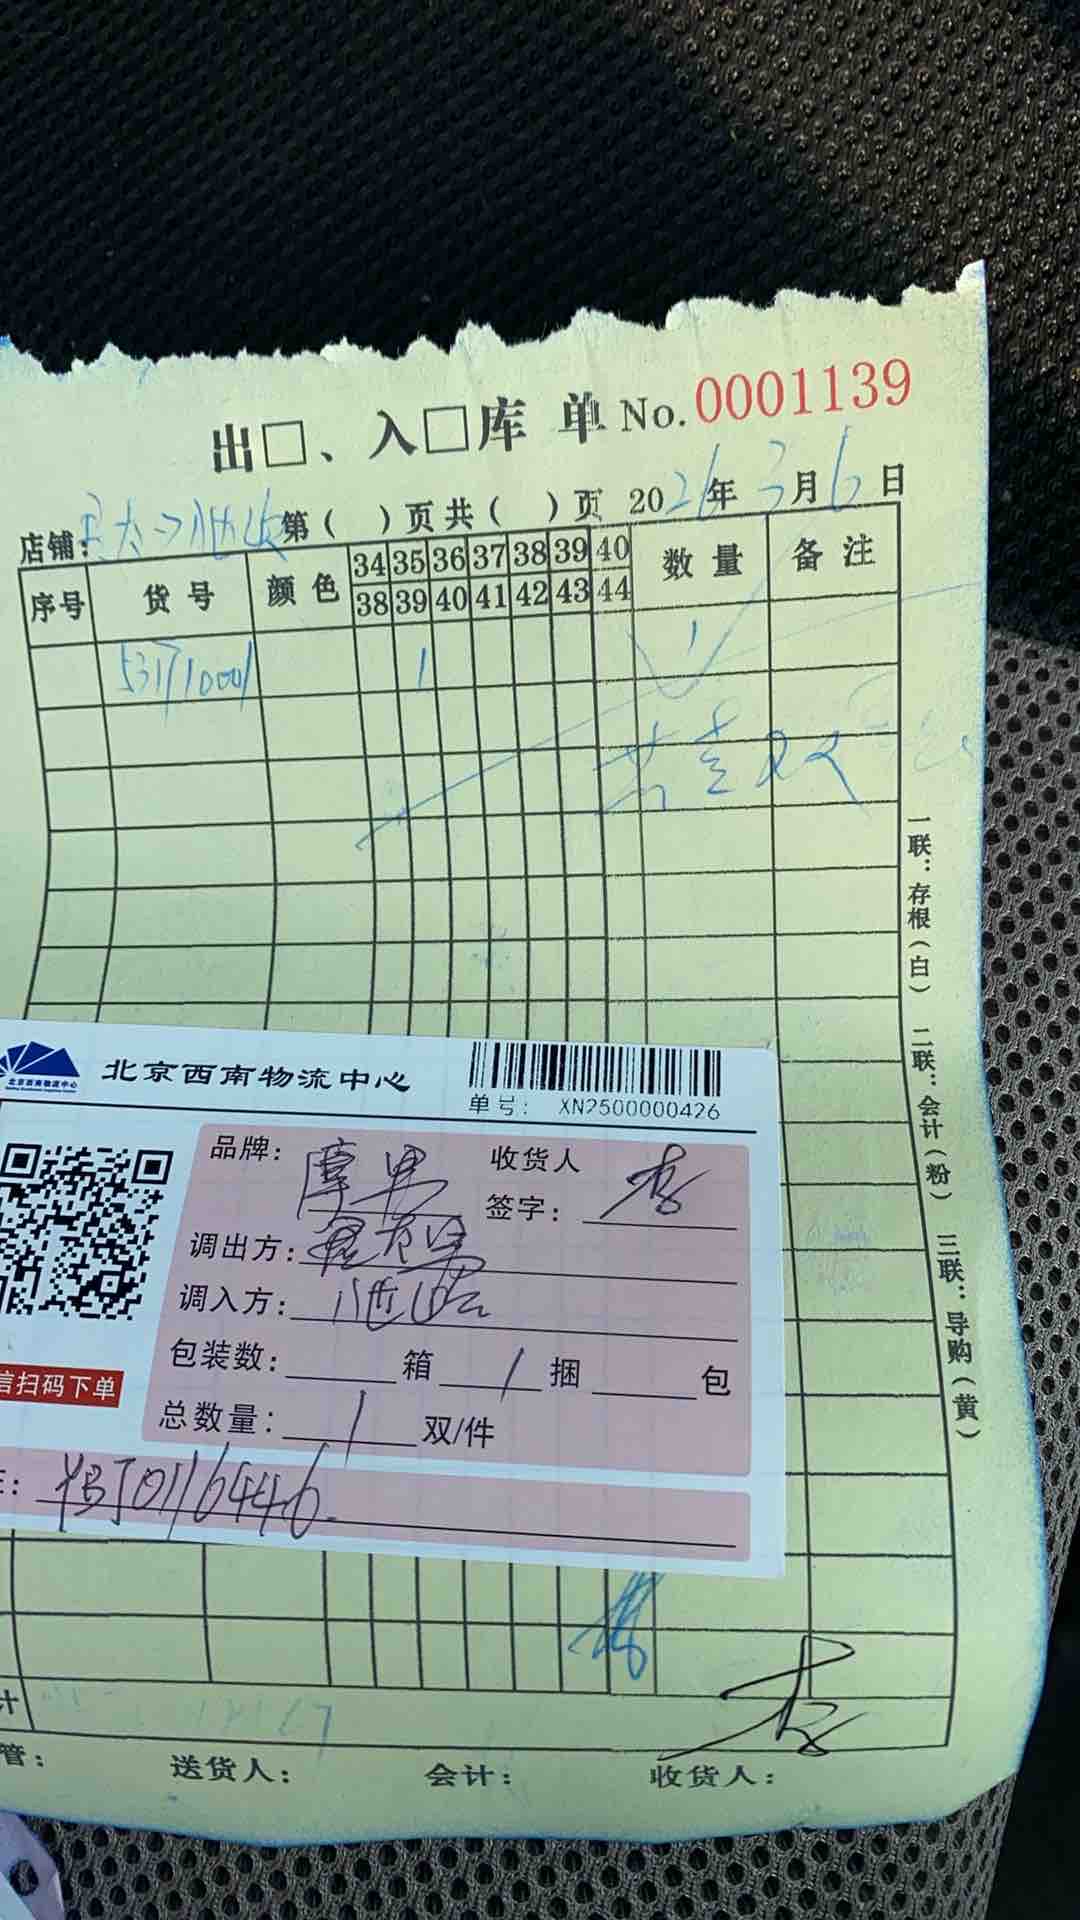 出□、入□库 单 No. 0001139
店铺: 第( )页共( )页 2026年3月6日
序号 货号 颜色 34 35 36 37 38 39 40 数量 备注
38 39 40 41 42 43 44
531710001 1 1
壹双
一联：存根（白） 二联：会计（粉） 三联：导购（黄）
北京西南物流中心
北京西南物流中心
单号: XN2500000426
品牌: 收货人
签字:
调出方:
调入方:
包装数: 箱 1 捆 包
总数量: 1 双/件
信扫码下单
YBJ0116446
计
管: 送货人: 会计: 收货人: